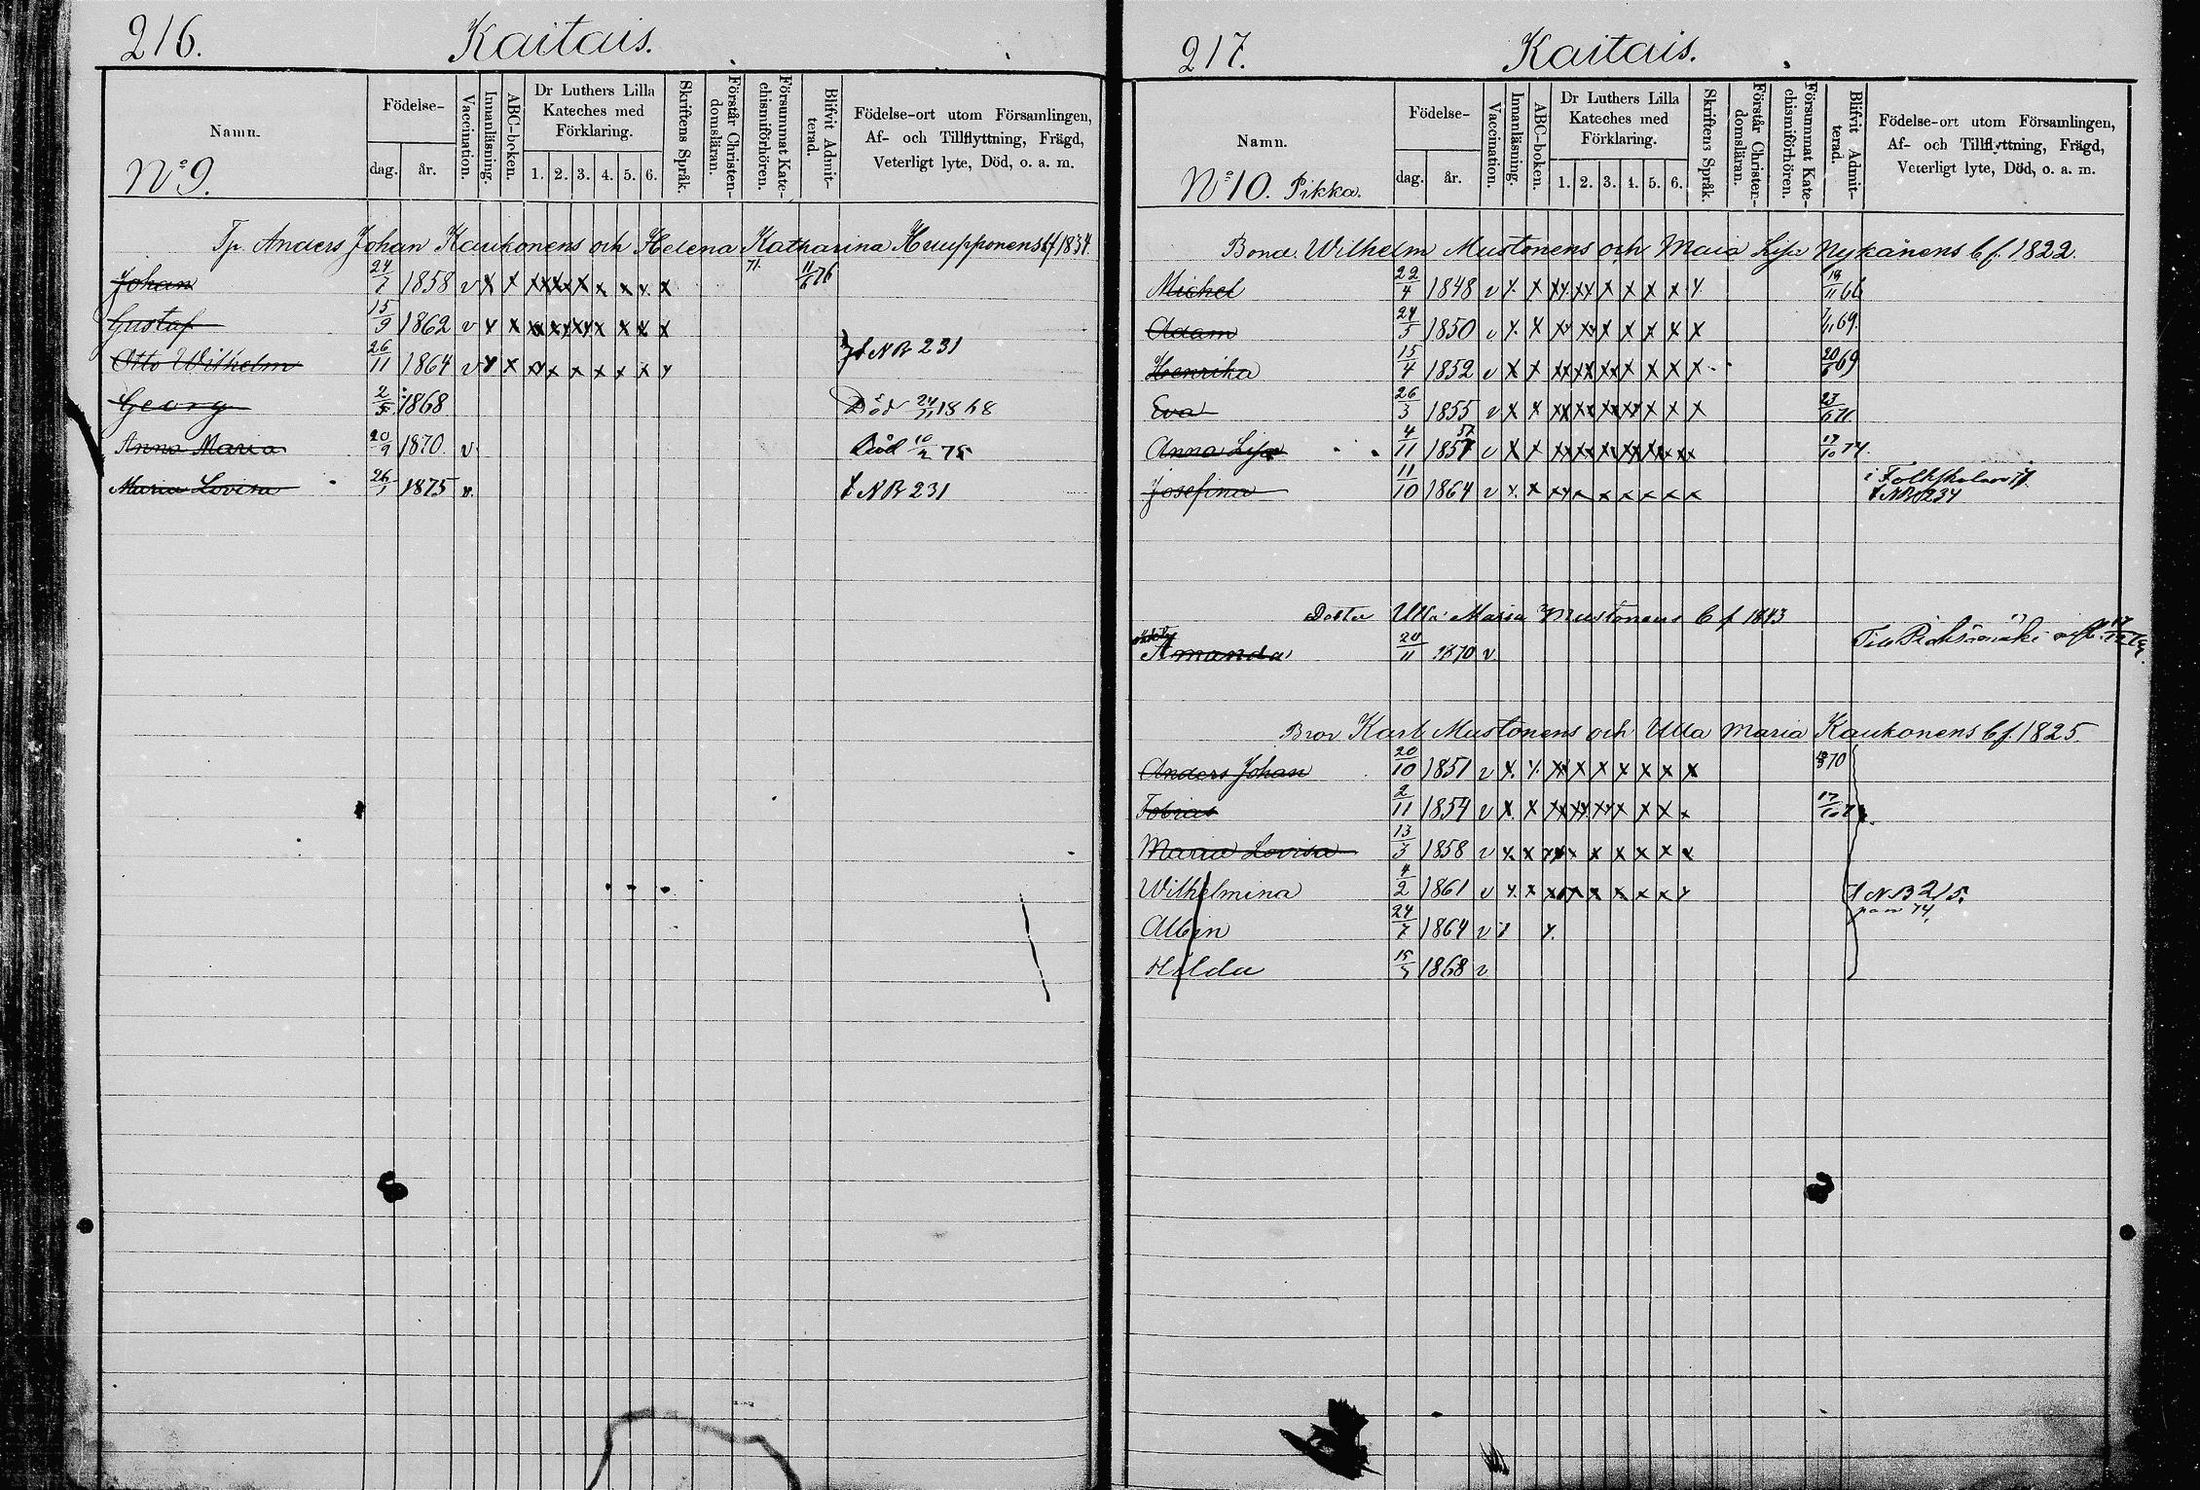 216. Kaitais.
Namn.
Födelse-
dag. år.
Vaccination.
Innanläsning.
ABC-boken.
Dr Luthers Lilla Kateches med Förklaring.
1. 2. 3. 4. 5. 6.
Skriftens Språk.
Förstår Christendomsläran.
Försummat Katechismiförhören.
Blifvit Admitterad.
Födelse-ort utom Församlingen,
Af- och Tillflyttning, Frägd,
Veterligt lyte, Död, o. a. m.
No 9.
Tp. Anders Johan Kaukonens och Helena Katharina Heupponens bf 1834
Johan 24/7 1858 v x x xx xx x x x x x 71. 11/6 76
Gustaf 15/9 1862 v x x xx xx xx x x x x
Otto Wilhelm 26/11 1864 v x x xx x x x x x x f NB 231
Georg 2/5 1868 Död 24/11 1868
Anna Maria 20/9 1870 v Död 10/2 75
Maria Lovisa 26/1 1875 v. f NB 231
217. Kaitais.
Namn.
Födelse-
dag. år.
Vaccination.
Innanläsning.
ABC-boken.
Dr Luthers Lilla Kateches med Förklaring.
1. 2. 3. 4. 5. 6.
Skriftens Språk.
Förstår Christendomsläran.
Försummat Katechismiförhören.
Blifvit Admitterad.
Födelse-ort utom Församlingen,
Af- och Tillflyttning, Frägd,
Veterligt lyte, Död, o. a. m.
No 10. Pikka.
Bonde. Wilhelm Mustonens och Maia Lisa Nykänens bf. 1822.
Michel 22/4 1848 v x x xx xx x x x x x 66
Adam 24/5 1850 v x x xx xx x x x x x 69.
Henrika 15/4 1852 v x x xx xx xx x x x x 69
Eva 26/3 1855 v x x xx xx xx xx x x x 71.
Anna Lisa 4/11 1857 57 v x x xx xx xx xx xx xx 17/10 74.
Josefina 11/10 1864 v x x xx x x x x x x i Folkskolan
f NB 234
Dotter Ulla Maria Mustonens bf 1843
Amanda 20/11 1870 v Till Pieksämäki
Bror Karl Mustonens och Ulla Maria Kaukonens bf. 1825.
Anders Johan 20/10 1851 v x x xx x x x x x x 70
Tobias 2/11 1854 v x x xx xx xx x x x x 17/10
Maria Lovisa 13/3 1858 v x x xx x x x x x x
Wilhelmina 4/2 1861 v x x xx x x x x x x f NB 215.
Albin 24/7 1864 v x x
Hilda 15/5 1868 v